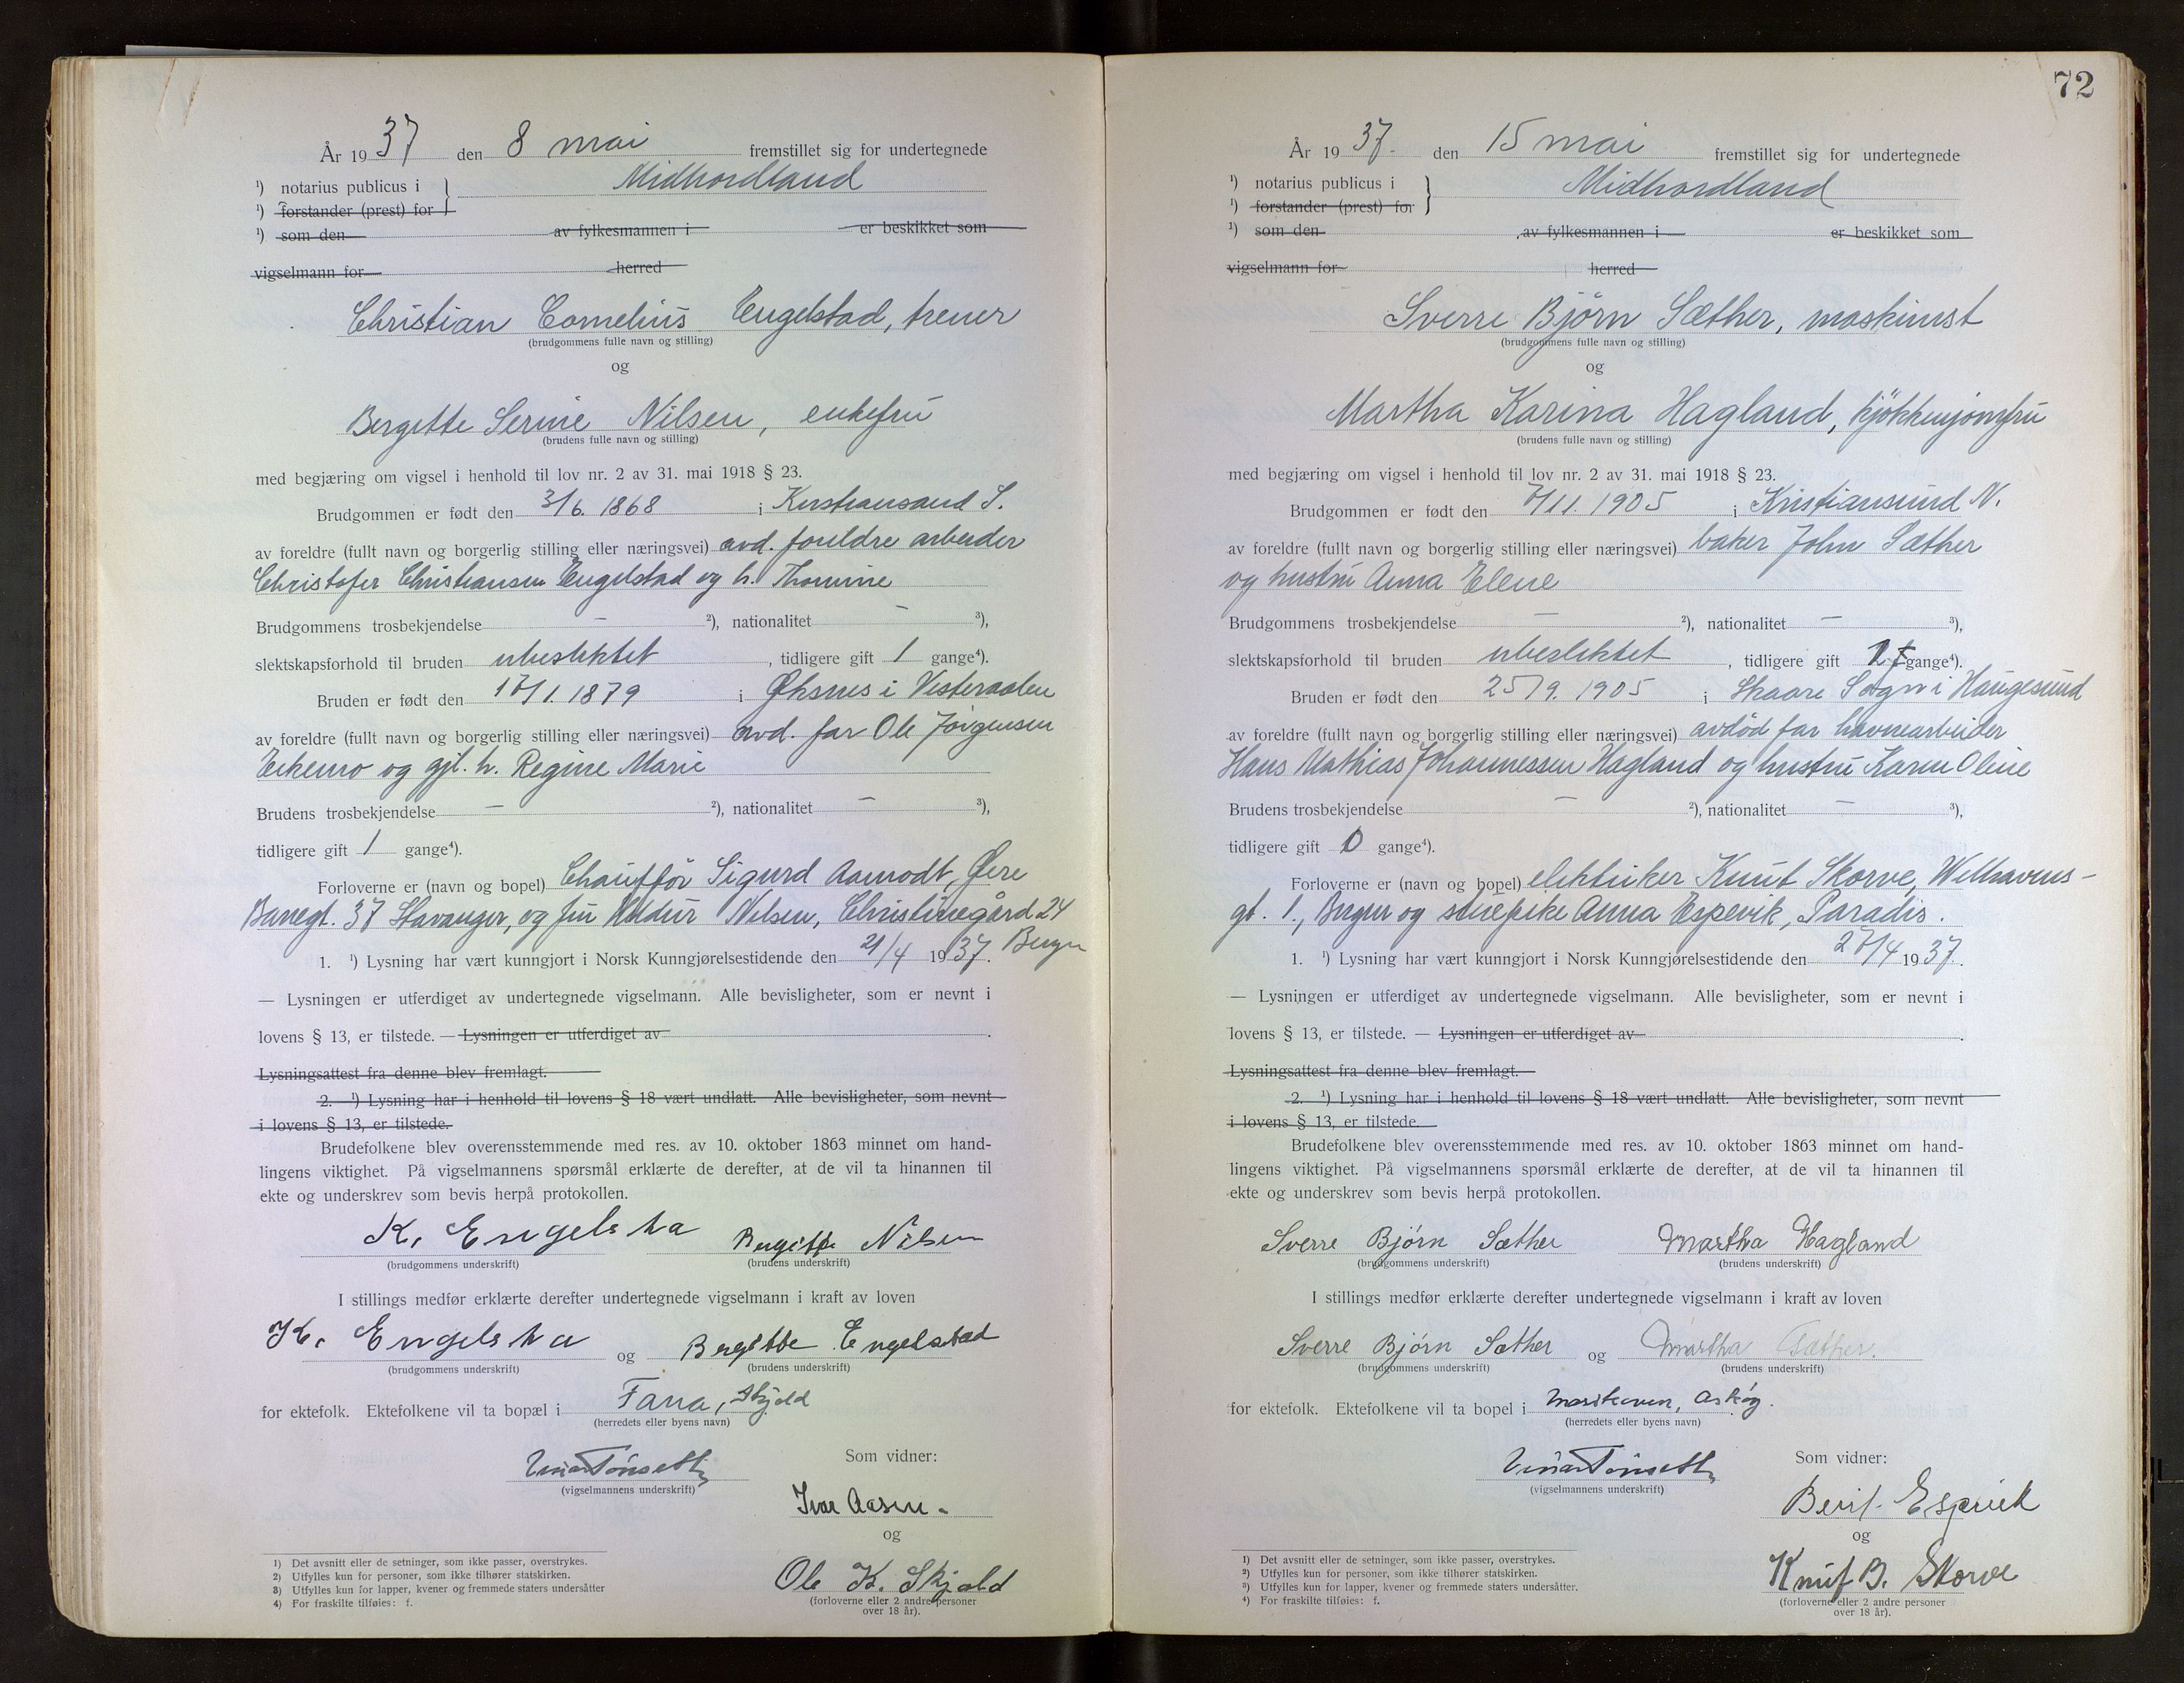 År 1937 den 8 mai fremstillet sig for undertegnede
¹) notarius publicus i } Midhordland
¹) forstander (prest) for
¹) som den av fylkesmannen i er beskikket som
vigselmann for herred
Christian Cornelius Engelstad, trener
(brudgommens fulle navn og stilling)
og
Bergitte Serine Nilsen, enkefru
(brudens fulle navn og stilling)
med begjæring om vigsel i henhold til lov nr. 2 av 31. mai 1918 § 23.
Brudgommen er født den 3/6. 1868 i Kristiansand S.
av foreldre (fullt navn og borgerlig stilling eller næringsvei) avd. foreldre arbeider
Christofer Christiansen Engelstad og h. Thomine
Brudgommens trosbekjendelse — ²), nationalitet — ³),
slektskapsforhold til bruden ubeslektet, tidligere gift 1 gange⁴).
Bruden er født den 17/1. 1879 i Øksnes i Vesteraalen
av foreldre (fullt navn og borgerlig stilling eller næringsvei) avd. far Ole Jörgensen
og gjl. h. Regine Marie
Brudens trosbekjendelse — ²), nationalitet — ³),
tidligere gift 1 gange⁴).
Forloverne er (navn og bopel) Chaufför Sigurd Aamodt, Øvre
Banegt. 37 Stavanger, og fru Nilsen, Christinegård 24
Bergen
1. ¹) Lysning har vært kunngjort i Norsk Kunngjørelsestidende den 21/4 1937.
— Lysningen er utferdiget av undertegnede vigselmann. Alle bevisligheter, som er nevnt i
lovens § 13, er tilstede. — Lysningen er utferdiget av
Lysningsattest fra denne blev fremlagt.
2. ¹) Lysning har i henhold til lovens § 18 vært undlatt. Alle bevisligheter, som nevnt
i lovens § 13, er tilstede.
Brudefolkene blev overensstemmende med res. av 10. oktober 1863 minnet om hand-
lingens viktighet. På vigselmannens spørsmål erklærte de derefter, at de vil ta hinannen til
ekte og underskrev som bevis herpå protokollen.
K. Engelsta Bergitte Nilsen
(brudgommens underskrift) (brudens underskrift)
I stillings medfør erklærte derefter undertegnede vigselmann i kraft av loven
K. Engelsta og Bergitte Engelstad
(brudgommens underskrift) (brudens underskrift)
for ektefolk. Ektefolkene vil ta bopæl i Fana, Skjold
(herredets eller byens navn)
Som vidner:
(vigselmannens underskrift)
Ivar Aasen
og
Ole K. Skjold
(forloverne eller 2 andre personer
over 18 år).
1) Det avsnitt eller de setninger, som ikke passer, overstrykes.
2) Utfylles kun for personer, som ikke tilhører statskirken.
3) Utfylles kun for lapper, kvener og fremmede staters undersåtter
4) For fraskilte tilføies: f.
72
År 1937. den 15 mai fremstillet sig for undertegnede
¹) notarius publicus i } Midhordland
¹) forstander (prest) for
¹) som den av fylkesmannen i er beskikket som
vigselmann for herred
Sverre Björn Sæther, maskinist
(brudgommens fulle navn og stilling)
og
Martha Karina Hagland, kjökkenjomfru
(brudens fulle navn og stilling)
med begjæring om vigsel i henhold til lov nr. 2 av 31. mai 1918 § 23.
Brudgommen er født den 7/11. 1905 i Kristiansund N.
av foreldre (fullt navn og borgerlig stilling eller næringsvei) baker John Sæther
og hustru Anna Elene
Brudgommens trosbekjendelse — ²), nationalitet — ³),
slektskapsforhold til bruden ubeslektet, tidligere gift 1 f gange⁴).
Bruden er født den 25/9. 1905 i Skaare Sogn i Haugesund
av foreldre (fullt navn og borgerlig stilling eller næringsvei) avdöd far havnearbeider
Hans Mathias Johannessen Hagland og hustru Karen Oline
Brudens trosbekjendelse — ²), nationalitet — ³),
tidligere gift 0 gange⁴).
Forloverne er (navn og bopel) elektriker Knut Skorve, Welhavens-
gt. 1., Bergen og stuepike Anna Espevik, Paradis.
1. ¹) Lysning har vært kunngjort i Norsk Kunngjørelsestidende den 27/4 1937.
— Lysningen er utferdiget av undertegnede vigselmann. Alle bevisligheter, som er nevnt i
lovens § 13, er tilstede. — Lysningen er utferdiget av
Lysningsattest fra denne blev fremlagt.
2. ¹) Lysning har i henhold til lovens § 18 vært undlatt. Alle bevisligheter, som nevnt
i lovens § 13, er tilstede.
Brudefolkene blev overensstemmende med res. av 10. oktober 1863 minnet om hand-
lingens viktighet. På vigselmannens spørsmål erklærte de derefter, at de vil ta hinannen til
ekte og underskrev som bevis herpå protokollen.
Sverre Bjørn Sæther Martha Hagland
(brudgommens underskrift) (brudens underskrift)
I stillings medfør erklærte derefter undertegnede vigselmann i kraft av loven
Sverre Bjørn Sæther og Martha Sæther.
(brudgommens underskrift) (brudens underskrift)
for ektefolk. Ektefolkene vil ta bopel i Marikoven, Askøy.
(herredets eller byens navn)
Som vidner:
(vigselmannens underskrift)
Berit Espevik
og
Knut B. Skorve
(forloverne eller 2 andre personer
over 18 år).
1) Det avsnitt eller de setninger, som ikke passer, overstrykes.
2) Utfylles kun for personer, som ikke tilhører statskirken.
3) Utfylles kun for lapper, kvener og fremmede staters undersåtter.
4) For fraskilte tilføies: f.